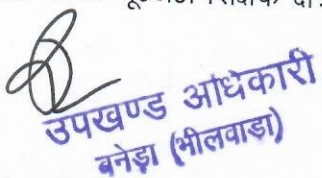 उपखण्ड अधिकारी
बनेड़ा (भीलवाडा)